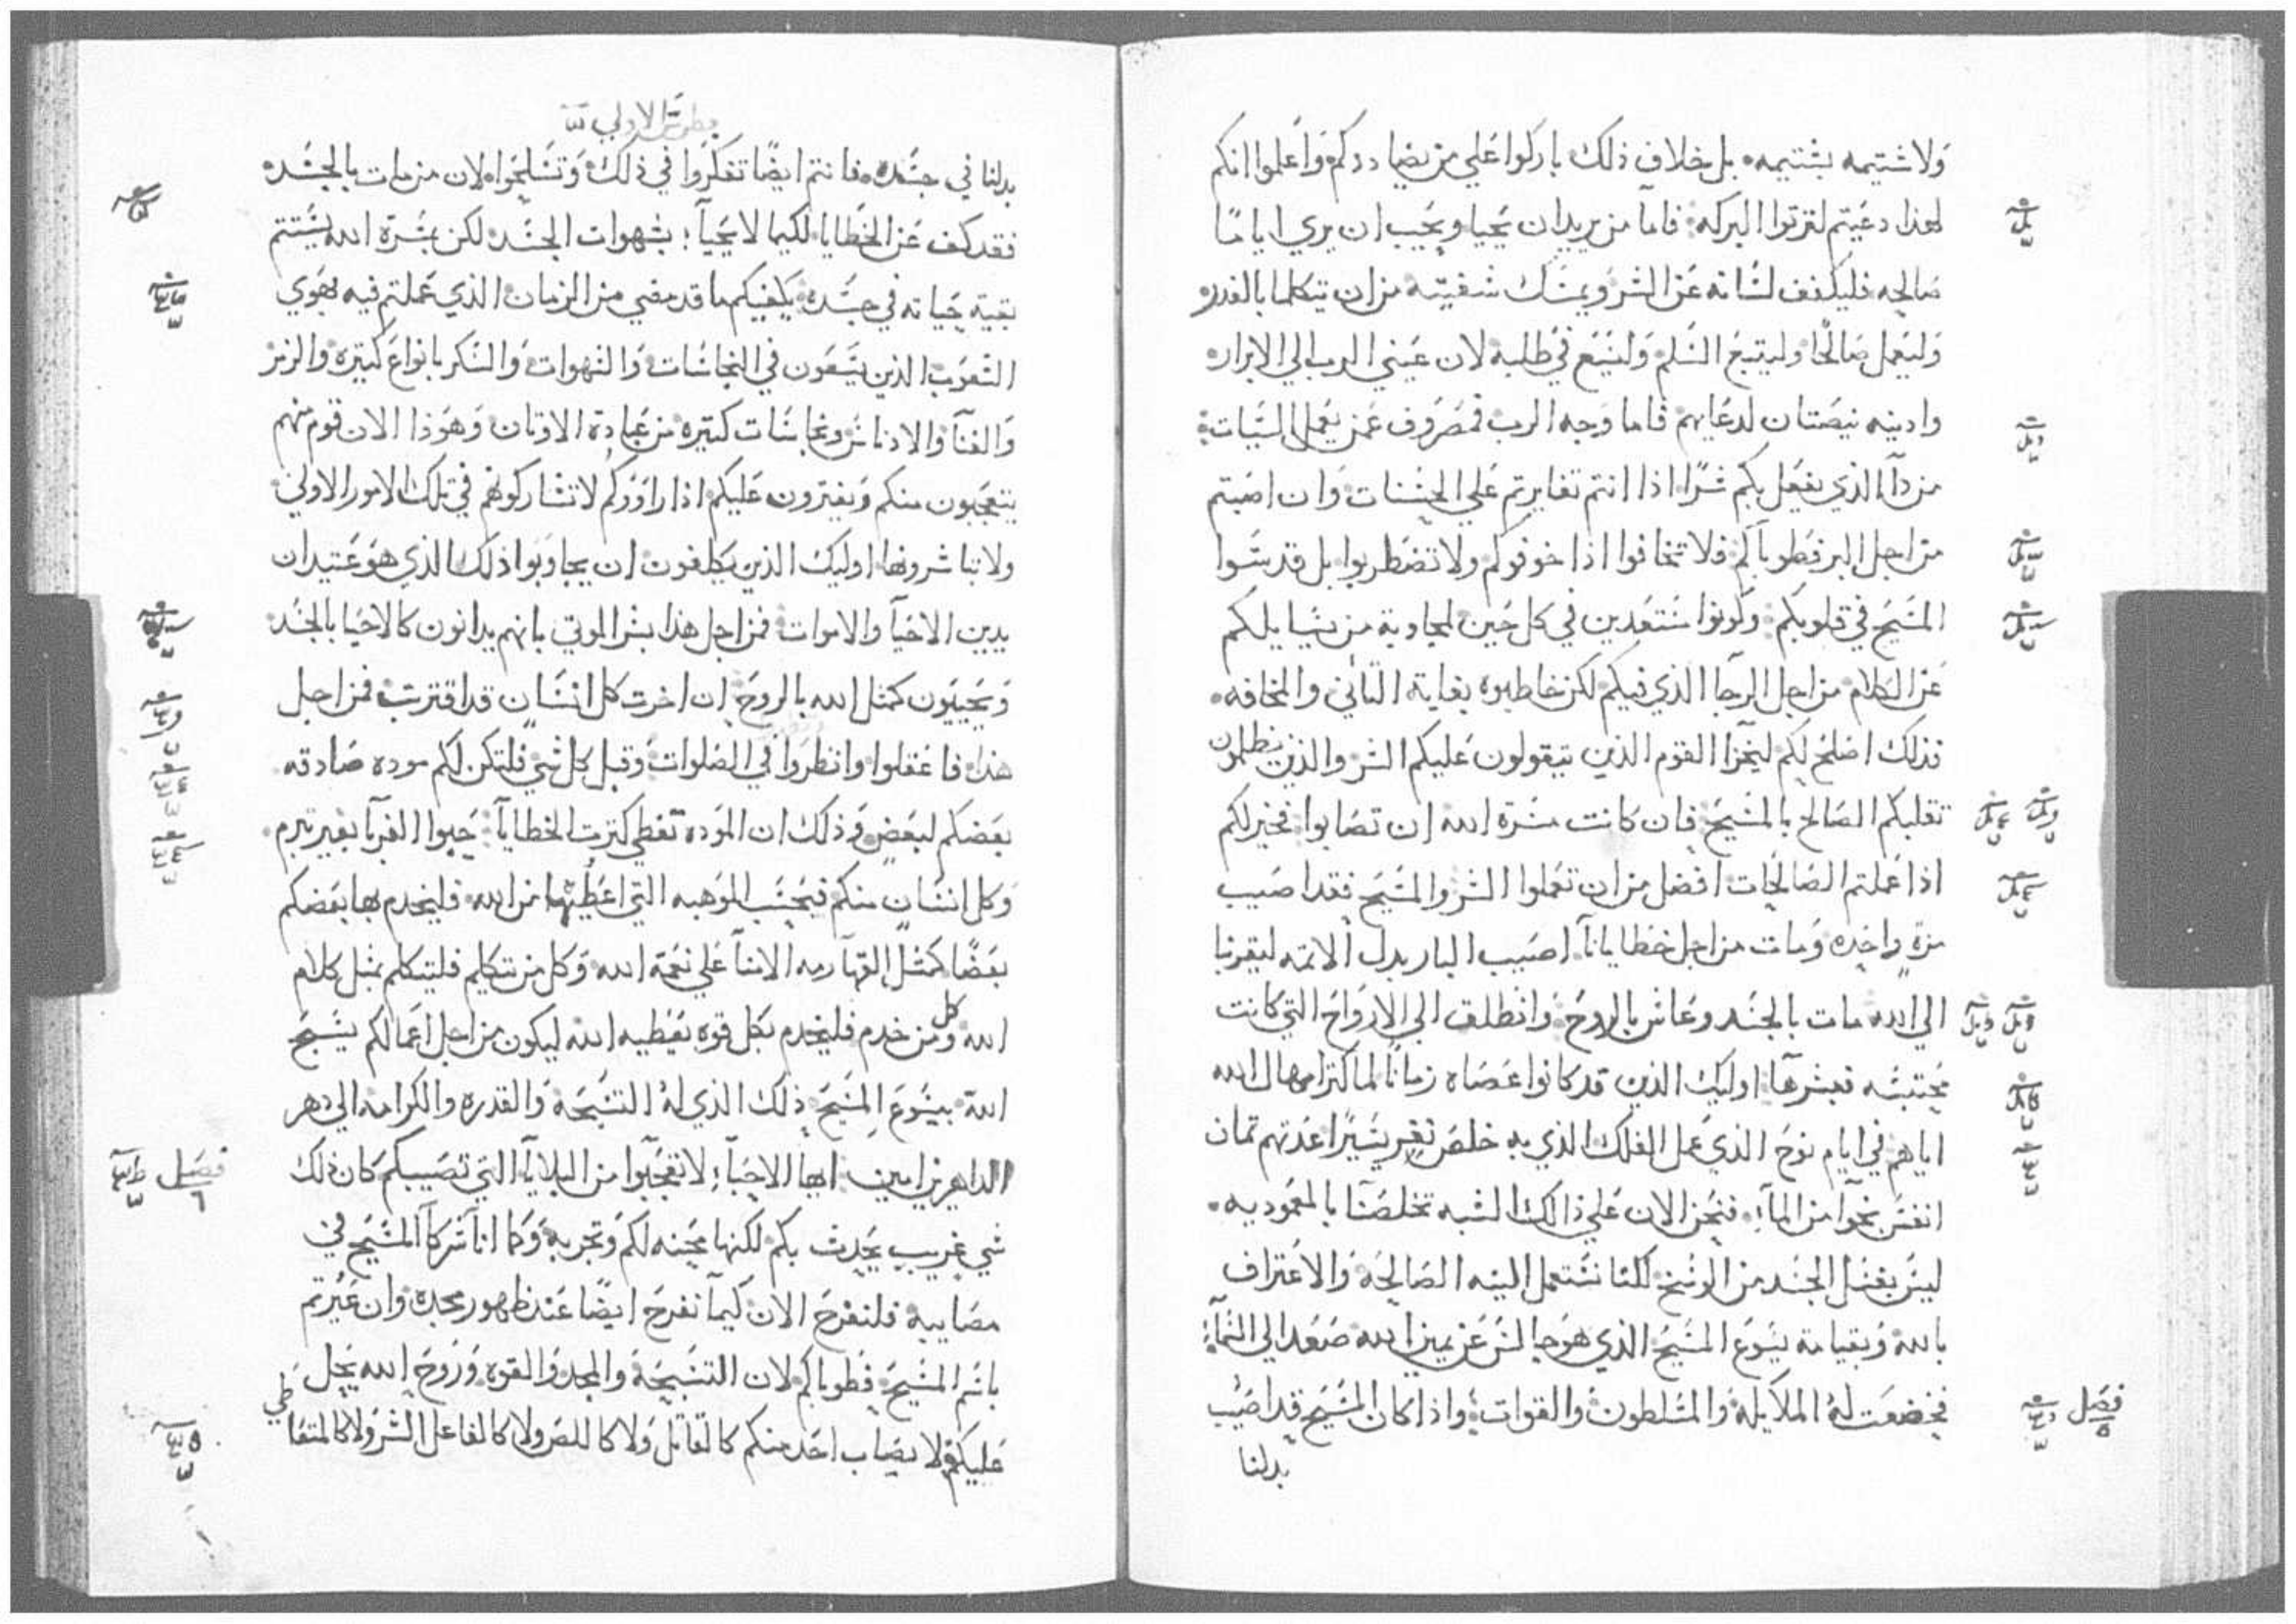 ولا شتيمه بشتيمه بل خلاف ذلك باركوا علي من يضاددكم واعلموا انكم
لهذا دعيتم لترتوا البركه فاما من يريد ان يحيا ويحب ان يري اياما
صالحه فليكفف لسانه عن الشر ويمسك شفيته من ان يتكلما بالغدر
وليعمل صالحا وليتبع السلم وليسع في طلبه لان عيني الرب الي الابرار
وادنيه نيصتان لدعايهم فاما وجه الرب فمصروف عمن يعمل السيات
من دا الذي يفعل بكم شرا اذا انتم تغايرتم علي الحسنات وان اصبتم
من اجل البر فطوبا لكم فلا تخافوا اذا خوفوكم ولا تضطربوا بل قدسوا
المسيح في قلوبكم وكونوا مستعدين في كل حين لمجاوبة من يسايلكم
عن الكلام من اجل الرجا الذي فيكم لكن خاطبوه بغاية التاني والمخافه
فذلك اصلح لكم ليخزا القوم الذين يتقولون عليكم الشر والذين يظلمون
تقلبكم الصالح بالمسيح فان كانت مسرة الله ان تصابوا فخير لكم
اذا عملتم الصالحات افضل من ان تعملوا الشر والمسيح فقد اصيب
مرة واحده ومات من اجل خطايانا اصيب البار بدل الاتمه ليقربنا
الي الله مات بالجسد وعاش بالروح وانطلق الي الارواح التي كانت
محتبسه فبشرها اوليك الذين قد كانوا عصاه زمانا لما كتر امهال الله
اياهم في ايام نوح الذي عمل الفلك الذي به خلص نفر يسيرا عدتهم تمان
انفس نجوا من الماء فنحن الان علي ذالك الشبه تخلصنا بالمعموديه
ليس بغسل الجسد من الوسخ لكننا نستعمل النيه الصالحه والاعتراف
بالله وبقيامة يسوع المسيح الذي هو جالس عن يمين الله صعد الي السماء
فخضعت له الملايكه والمسلطون والقوات واذا كان المسيح قد اصيب
فصل
٥
بدلنا
بطرس الاولي
بدلنا في جسده فانتم ايضا تفكروا في ذلك وتسلحوا لان من مات بالجسد
فقد كف عن الخطايا لكيما لا يحيا بشهوات الجسد لكن بمسرة الله يستتم
بقية حياته في جسده يكفيكم ما قد مضي من الزمان الذي عملتم فيه بهوي
الشعوب الذين يسعون في النجاسات والشهوات والسكر بانواع كتيره والزمر
والغنا والادناس ونجاسات كتيره من عبادة الاوتان وهوذا الان قوم منهم
يتعجبون منكم ويفترون عليكم اذا راوكم لا تشاركونهم في تلك الامور الاولي
ولا تباشرونها اوليك الذين يكلفون ان يجاوبوا ذلك الذي هو عتيد ان
يدين الاحيا والاموات فمن اجل هذا بشر الموتي بانهم يدانون كالاحيا بالجسد
ويحييون كمثل الله بالروح ان اخرت كل انسان قد اقتربت فمن اجل
هذا فاعقلوا وانظروا في الصلوات وقبل كل شي فلتكن لكم موده صادقه
بعضكم لبعض وذلك ان الموده تغطي كترت الخطايا حبوا الغربا بغير تبرم
وكل انسان منكم فبحسب الموهبه التي اعطيها من الله فليخدم بها بعضكم
بعضا كمثل القهارمه الامنا علي نعمة الله وكل من يتكلم فليتكلم بمثل كلام
الله وكل من خدم فليخدم بكل قوه يعطيه الله ليكون من اجل اعمالكم يسبح
الله بيسوع المسيح ذلك الذي له التسبحه والقدره والكرامه الي دهر
الداهرين امين ايها الاحباء لا تعجبوا من البلايا التي تصيبكم كان ذلك
فصل
٦
شي غريب يحدث بكم لكنها محنه لكم وتجربه وكما انا شركا المسيح في
مصايبه فلنفرح الان كيما نفرح ايضا عند ظهور مجده وان عيرتم
باسم المسيح فطوباكم لان التسبحه والمجد والقوه وروح الله يحل
عليكم ولا يصاب احد منكم كالقاتل ولا كاللص ولا كالفاعل الشر ولا كالمتعاطي